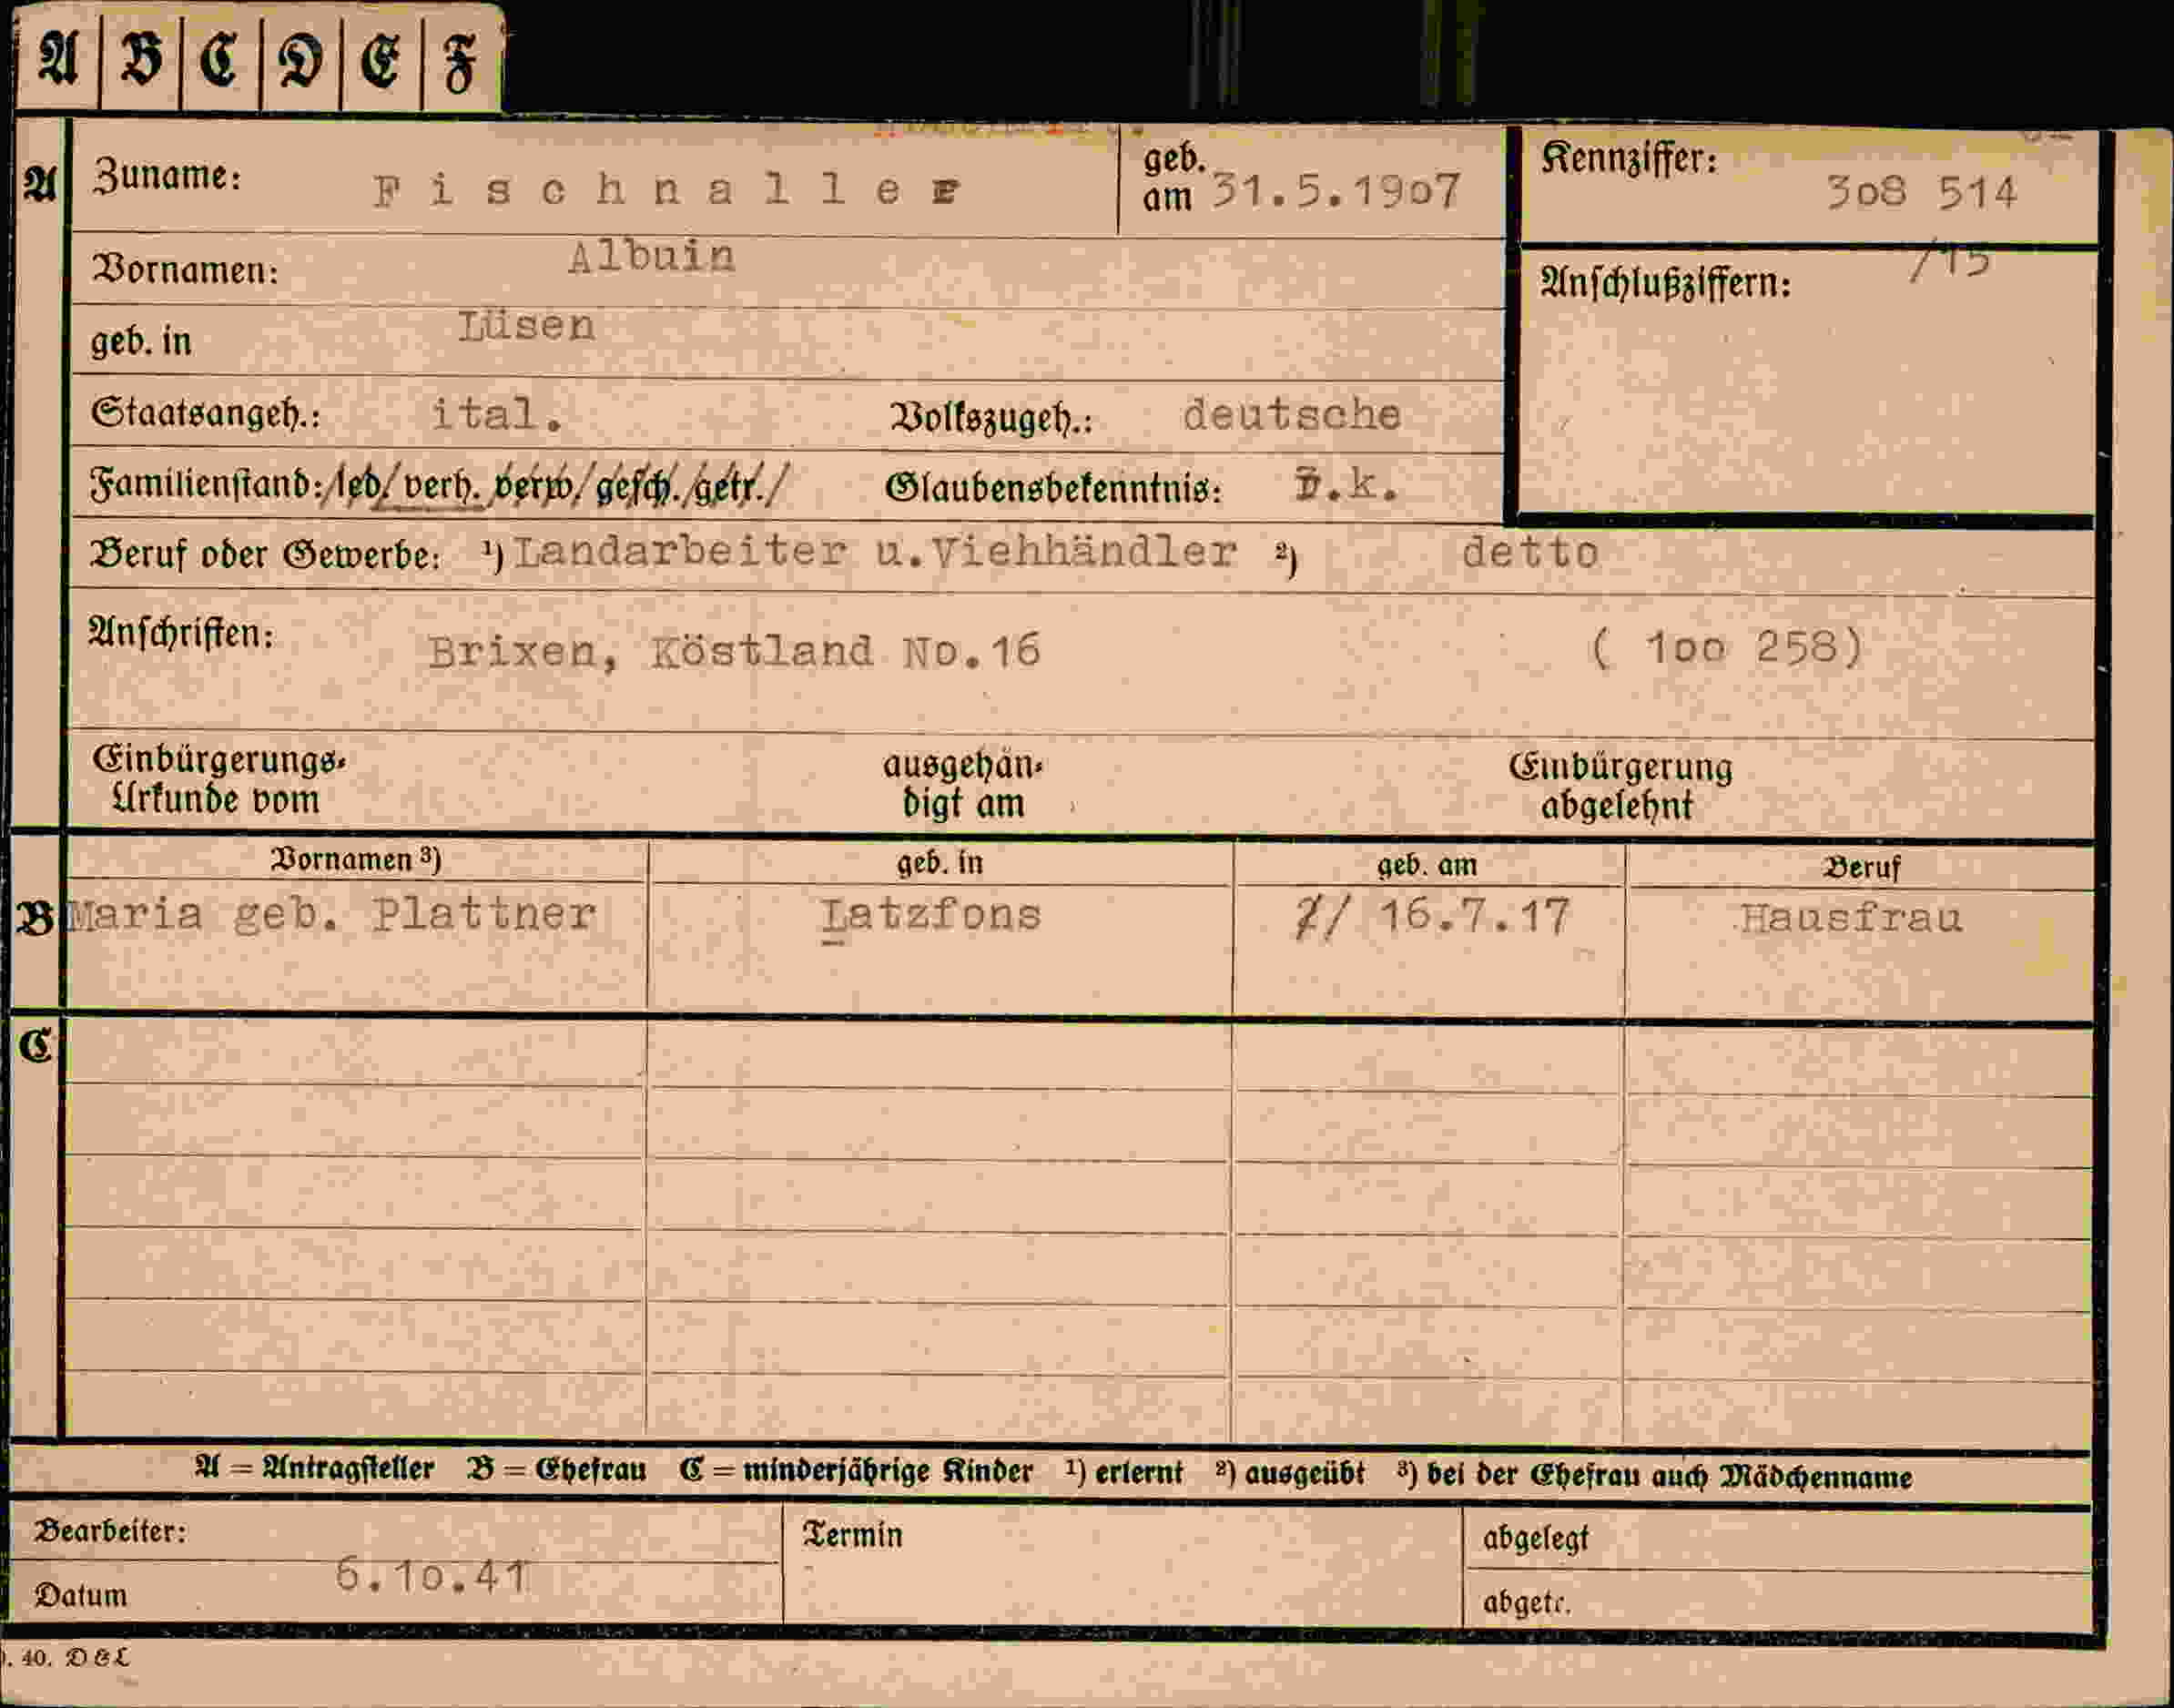 A B C D E F
A Zuname: Fischnaller geb. am 31.5.1907 Kennziffer: 308 514
Vornamen: Albuin Anschlußziffern: /15
geb. in Lüsen
Staatsangeh.: ital. Volkszugeh.: deutsche
Familienstand: led. verh. verw. gesch. getr. Glaubensbekenntnis: k.
Beruf oder Gewerbe: ¹) Landarbeiter u.Viehhändler ²) detto
Anschriften: Brixen, Köstland No.16 ( 100 258)
Einbürgerungs-Urkunde vom ausgehändigt am Einbürgerung abgelehnt
Vornamen ³) geb. in geb. am Beruf
B Maria geb. Plattner Latzfons 16.7.17 Hausfrau
C
A = Antragsteller B = Ehefrau C = minderjährige Kinder ¹) erlernt ²) ausgeübt ³) bei der Ehefrau auch Mädchenname
Bearbeiter: Termin abgelegt
Datum 6.10.41 abgetr.
. 40. D & L